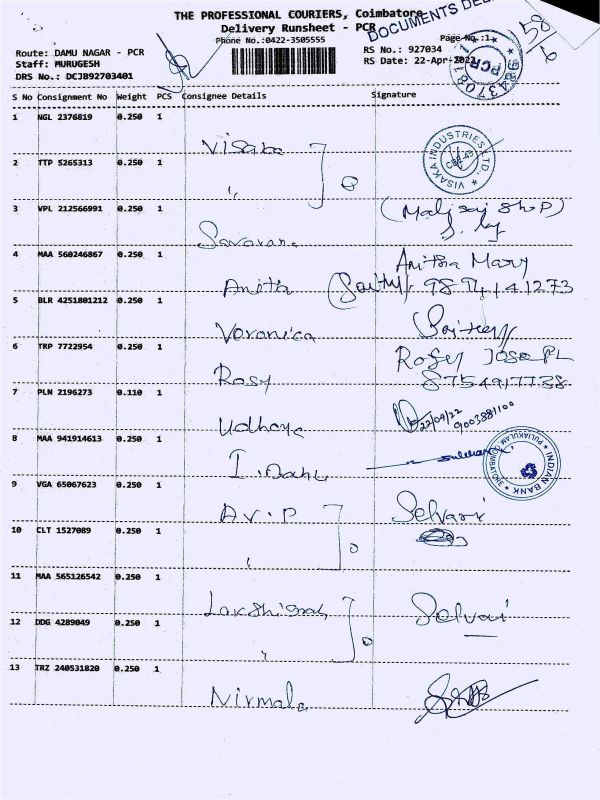 THE PROFESSIONAL COURIERS, Coimbatore
DOCUMENTS DEL
58/6
Delivery Runsheet - PCR
Phone No.:0422-3505555
Page No.:1
Route: DAMU NAGAR - PCR
RS No.: 927034
Staff: MURUGESH
RS Date: 22-Apr-2022
DRS No.: DCJB92703401
PCR
S No Consignment No Weight PCS Consignee Details Signature
1 NGL 2376819 0.250 1
Visaka
VISAKA INDUSTRIES LTD.
CBE-45
2 TTP 5265313 0.250 1
"
3 VPL 212566991 0.250 1
Saravana
4 MAA 560246867 0.250 1
Anitha Mary
Anitha
9894141273
5 BLR 4251801212 0.250 1
Veronica
6 TRP 7722954 0.250 1
Rosy Joseph
Rosy
8754917738
7 PLN 2196273 0.110 1
Udhaya
22/04/22
9003881100
8 MAA 941914613 0.250 1
INDIAN BANK
PULIAKULAM
COIMBATORE
9 VGA 65067623 0.250 1
A.V.P
Selvari
10 CLT 1527089 0.250 1
11 MAA 565126542 0.250 1
Lakshigrah
12 DDG 4289049 0.250 1
13 TRZ 240531820 0.250 1
Nirmala